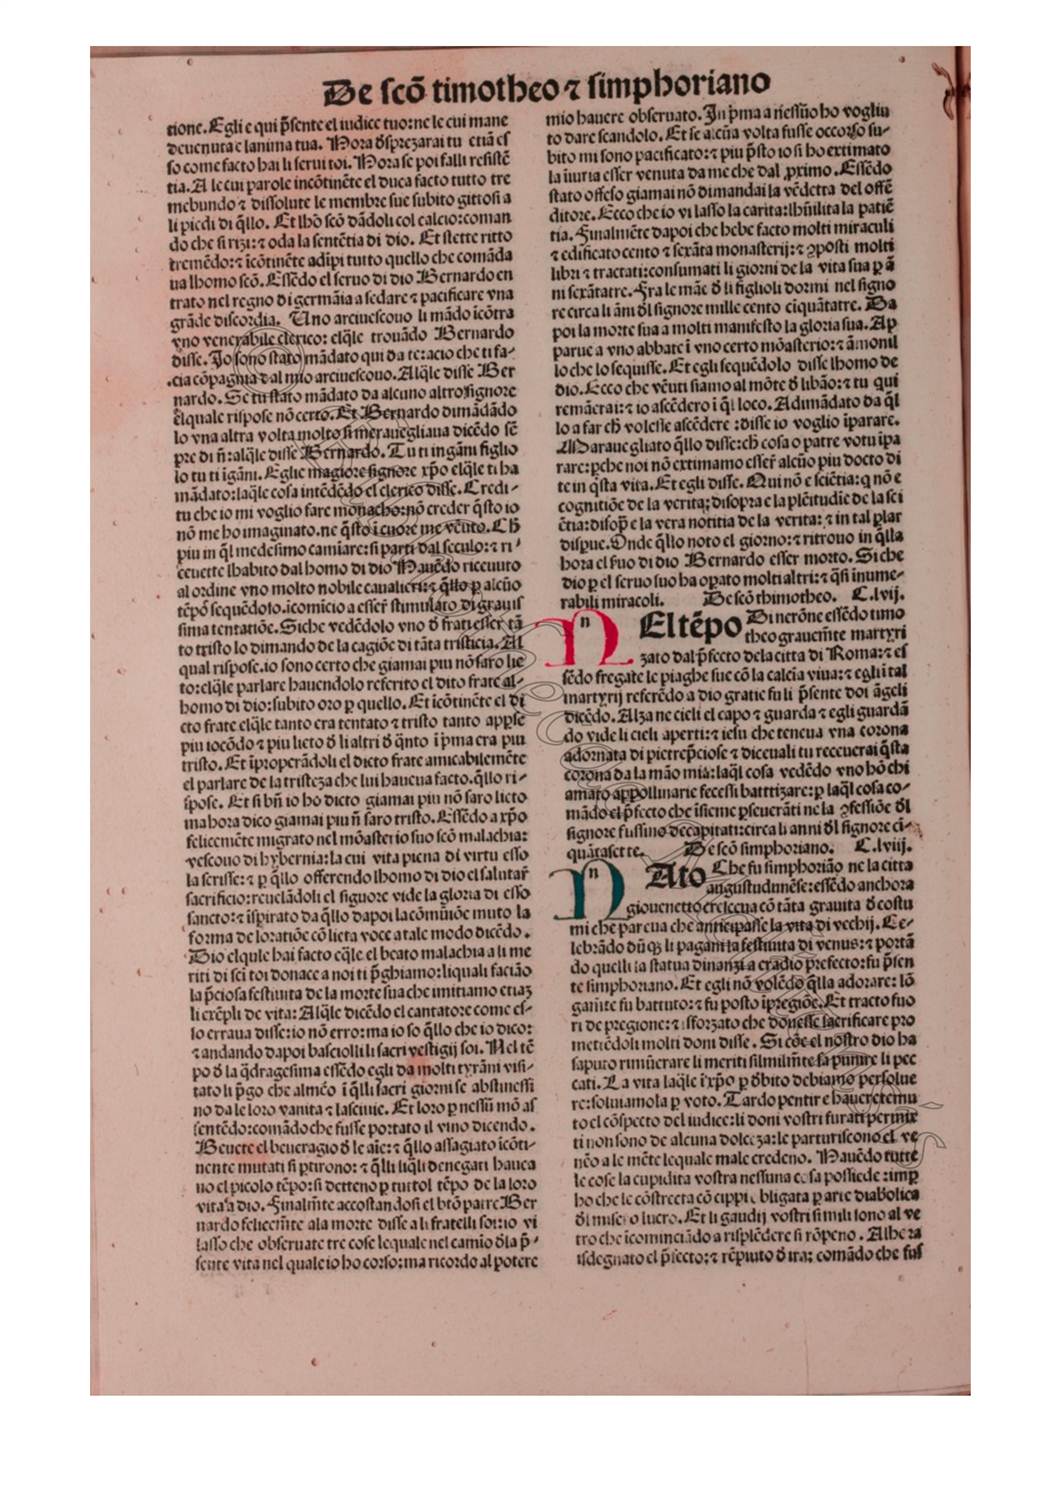 De scõ timotheo ⁊ simphoriano
tione. Egli e qui p̃sente el iudice tuo: ne le cui mane
deuenuta e lanima tua. Hora d̃sprezarai tu etiã es
so come facto hai li serui toi. Hora se poi falli resistẽ
tia. A le cui parole incõtinẽte el duca facto tutto tre
mebundo ⁊ dissolute le membre sue subito gittosi a
li piedi di q̃llo. Et lhõ scõ dãdoli col calcio: coman
do che si rizi: ⁊ oda la sentẽtia di dio. Et stette ritto
tremẽdo: ⁊ icõtinẽte adĩpi tutto quello che comãda
ua lhomo scõ. Essẽdo el seruo di dio Bernardo en
trato nel regno di germãia a sedare ⁊ pacificare vna
grãde discordia. Uno arciuescouo li mãdo icõtra
vno venerabile clerico: elq̃le trouãdo Bernardo
disse. Io sono stato mãdato qui da te: acio che ti fa-
cia cõpagnia dal mio arciuescouo. Alq̃le disse Ber
nardo. Se tu stato mãdato da alcuno altro signore
elquale rispose nõ certo. Et Bernardo dimãdãdo
lo vna altra volta molto si merauegliaua dicẽdo sẽ
pre di ñ: alq̃le disse Bernardo. Tu ti ingãni figlio
lo tu ti ĩgãni. Eglie magiore signore xp̃o elq̃le ti ha
mãdato: laq̃le cosa intẽdẽdo el clerico disse. Credi-
tu che io mi voglio fare monacho: nõ creder q̃sto io
nõ me ho imaginato. ne q̃sto i cuore me vẽuto. Ch̃
piu in q̃l medesimo camiare: si parti dal seculo: ⁊ ri
ceuette lhabito dal homo di dio Hauẽdo riceuuto
al ordine vno molto nobile caualieri: ⁊ q̃llo p alcũo
tẽpo sequẽdolo. icomicio a esser̃ stimulato di grauis
sima tentatiõe. Siche vedẽdolo vno d̃ frati esser tã
to tristo lo dimando de la cagiõe di tãta tristicia. Al
qual rispose. io sono certo che giamai piu nõ saro lie
to: elq̃le parlare hauendolo referito el dito frate al-
homo di dio: subito oro p quello. Et icõtinẽte el di
cto frate elq̃le tanto era tentato ⁊ tristo tanto app̃se
piu iocõdo ⁊ piu lieto d̃ li altri d̃ q̃nto ĩ p̃ma era piu
tristo. Et ĩproperãdoli el dicto frate amicabilemẽte
el parlare de la tristeza che lui haueua facto. q̃llo ri-
spose. Et si bñ io ho dicto giamai piu nõ saro lieto
ma hora dico giamai piu ñ saro tristo. Essẽdo a xp̃o
felicemẽte migrato nel mõasterio suo scõ malachia:
vescouo di hybernia: la cui vita piena di virtu esso
la scrisse: ⁊ p q̃llo offerendo lhomo di dio el salutar̃
sacrificio: reuelãdoli el signore vide la gloria di esso
sancto: ⁊ ĩspirato da q̃llo dapoi la cõmũiõe muto la
forma de loratiõe cõ lieta voce a tale modo dicẽdo.
Dio elqule hai facto eq̃le el beato malachia a li me
riti di sci toi donace a noi ti p̃ghiamo: liquali facião
la p̃ciosa festiuita de la morte sua che imitiamo etiaz
li exẽpli de vita: Alq̃le dicẽdo el cantatore come es-
so erraua disse: io nõ erro: ma io so q̃llo che io dico:
⁊ andando dapoi basciolli li sacri vestigij soi. Nel tẽ
po d̃ la q̃dragesima essẽdo egli da molti tyrãni visi-
tato li p̃go che almẽo ĩ q̃lli sacri giorni se abstinessi
no da le loro vanita ⁊ lasciuie. Et loro p nessũ mõ as
sentẽdo: comãdo che fusse portato il vino dicendo.
Beuete el beueragio d̃ le aĩe: ⁊ q̃llo assagiato icõti-
nente mutati si ptirono: ⁊ q̃lli liq̃li denegati hauea
no el picolo tẽpo: si detteno p tuttol tẽpo de la loro
vita a dio. Finalm̃te accostandosi el btõ patre Ber
nardo felicem̃te ala morte disse a li fratelli soi: io vi
lasso che obseruate tre cose lequale nel camio d̃la p̃-
sente vita nel quale io ho corso: ma ricordo al potere
mio hauere obseruato. In p̃ma a nessũo ho vogliu
to dare scandolo. Et se alcũa volta fusse occorso su-
bito mi sono pacificato: ⁊ piu p̃sto io si ho extimato
la ĩiuria esser venuta da me che dal ꝓximo. Essẽdo
stato offeso giamai nõ dimandai la vẽdetta del offẽ
ditore. Ecco che io vi lasso la carita: lhũilita la patiẽ
tia. Finalmẽte dapoi che hebe facto molti miraculi
⁊ edificato cento ⁊ sexãta monasterij: ⁊ ꝯposti molti
libri ⁊ tractati: consumati li giorni de la vita sua p ã
ni sexãtatre. Fra le mãe d̃ li figlioli dormi nel signo
re circa li ãni d̃l signore mille cento ciquãtatre. Da
poi la morte sua a molti manifesto la gloria sua. Ap
parue a vno abbate ĩ vno certo mõasterio: ⁊ ãmonil
lo che lo sequisse. Et egli sequẽdolo disse lhomo de
dio. Ecco che vẽuti siamo al mõte d̃ libão: ⁊ tu qui
remãerai: ⁊ io ascẽdero i q̃l loco. Adimãdato da q̃l
lo a far ch̃ volesse ascẽdere: disse io voglio ĩparare.
Marauegliato q̃llo disse: ch̃ cosa o patre votu ĩpa
rare: pche noi nõ extimamo esser̃ alcũo piu docto di
te in q̃sta vita. Et egli disse. Qui nõ e sciẽtia: q nõ e
cognitiõe de la verita: disopra e la plẽitudie de la sci
ẽtia: disop̃ e la vera notitia de la verita: ⁊ in tal plar
dispue. Onde q̃llo noto el giorno: ⁊ ritrouo in q̃lla
hora el suo di dio Bernardo esser morto. Si che
dio p el seruo suo ha opato molti altri: ⁊ q̃si inume-
rabili miracoli. De scõ thimotheo. C.lvij.
n
N El tẽpo Di nerõne essẽdo timo
theo grauem̃te martyri
zato dal p̃fecto dela citta di Roma: ⁊ es
sẽdo fregate le piaghe sue cõ la calcia viua: ⁊ egli i tal
martyrij referẽdo a dio gratie fu li p̃sente doi ãgeli
dicẽdo. Alza ne cieli el capo ⁊ guarda ⁊ egli guardã
do vide li cieli aperti: ⁊ iesu che teneua vna corona
adornata di pietre p̃ciose ⁊ diceuali tu receuerai q̃sta
corona da la mão mia: laq̃l cosa vedẽdo vno hõ chi
amato appollinarie fecessi batttizare: p laq̃l cosa co-
mãdo el p̃fecto che isieme pseuerãti ne la ꝓfessiõe d̃l
signore fussino decapitati: circa li anni d̃l signore ci-
quãtasette. De scõ simphoriano. C.lviij.
n
N Ato Che fu simphorião ne la citta
augustudunẽse: essẽdo anchora
giouenetto cresceua cõ tãta grauita d̃ costu
mi che parea che anticipasse la vita di vechij. Ce-
lebrãdo dũq; li pagani la festiuita di venus: ⁊ portã
do quelli la statua dinanzi a eradio p̃fecto: fu p̃sen
te simphoriano. Et egli nõ volẽdo q̃lla adorare: lõ
gam̃te fu battuto: ⁊ fu posto ĩpregiõe. Et tracto fuo
ri de pregione: ⁊ sforzato che douesse sacrificare pro
metiẽdoli molti doni disse. Si cõe el nostro dio ha
saputo rimũerare li meriti silmilm̃te sa punire li pec
cati. La vita laq̃le i xp̃o p d̃bito debiamo persolue
re: soluiamola p voto. Tardo pentire haueretemu
to el cõspecto del iudice: li doni vostri furati permix
ti non sono de alcuna dolceza: le parturiscono el ve
nẽo a le mẽte lequale male credeno. Hauẽdo tutte
le cose la cupidita vostra nessuna cosa possiede: imp
ho che le cõstrecta cõ cippi obligata p arte diabolica
d̃l misero lucro. Et li gaudij vostri simili sono al ve
tro che icominciãdo a risplẽdere si rõpeno. Alhora
isdegnato el p̃fecto: ⁊ rẽpiuto d̃ ira: comãdo che fus